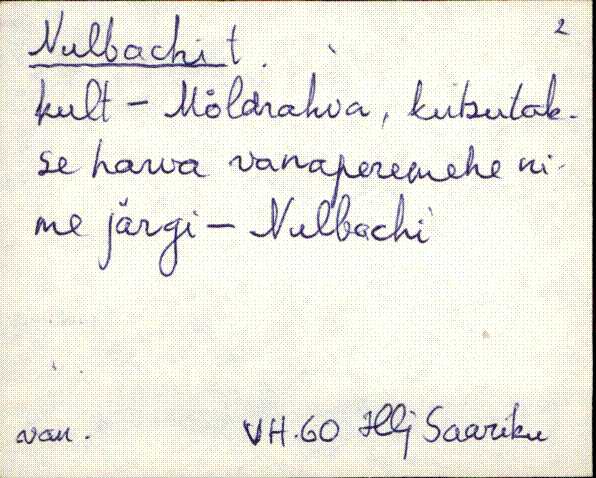 2
Nulbachi t.
kult – Möldrahva, kutsutak-
se harva vanaperemehe ni-
me järgi – Nulbachi
van. VH.60 Hlj Saariku